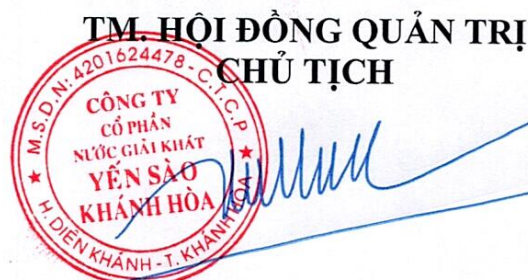 TM. HỘI ĐỒNG QUẢN TRỊ
CHỦ TỊCH
M.S.D.N: 4201624478 - C.T.C.P
CÔNG TY
CỔ PHẦN
NƯỚC GIẢI KHÁT
YẾN SÀO
KHÁNH HÒA
H. DIÊN KHÁNH - T. KHÁNH HÒA